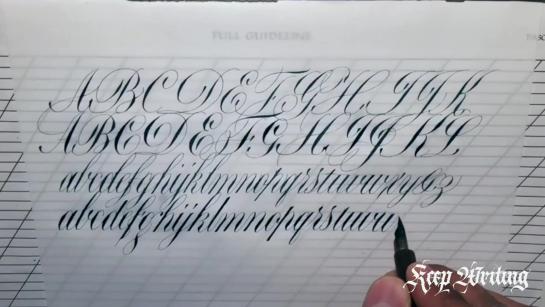 FULL GUIDELINE
A B C D E F G H I J K
A B C D E F G H I J K L
abcdefghijklmnopqrstuvwxyz
abcdefghijklmnopqrstuvw
Keep Writing